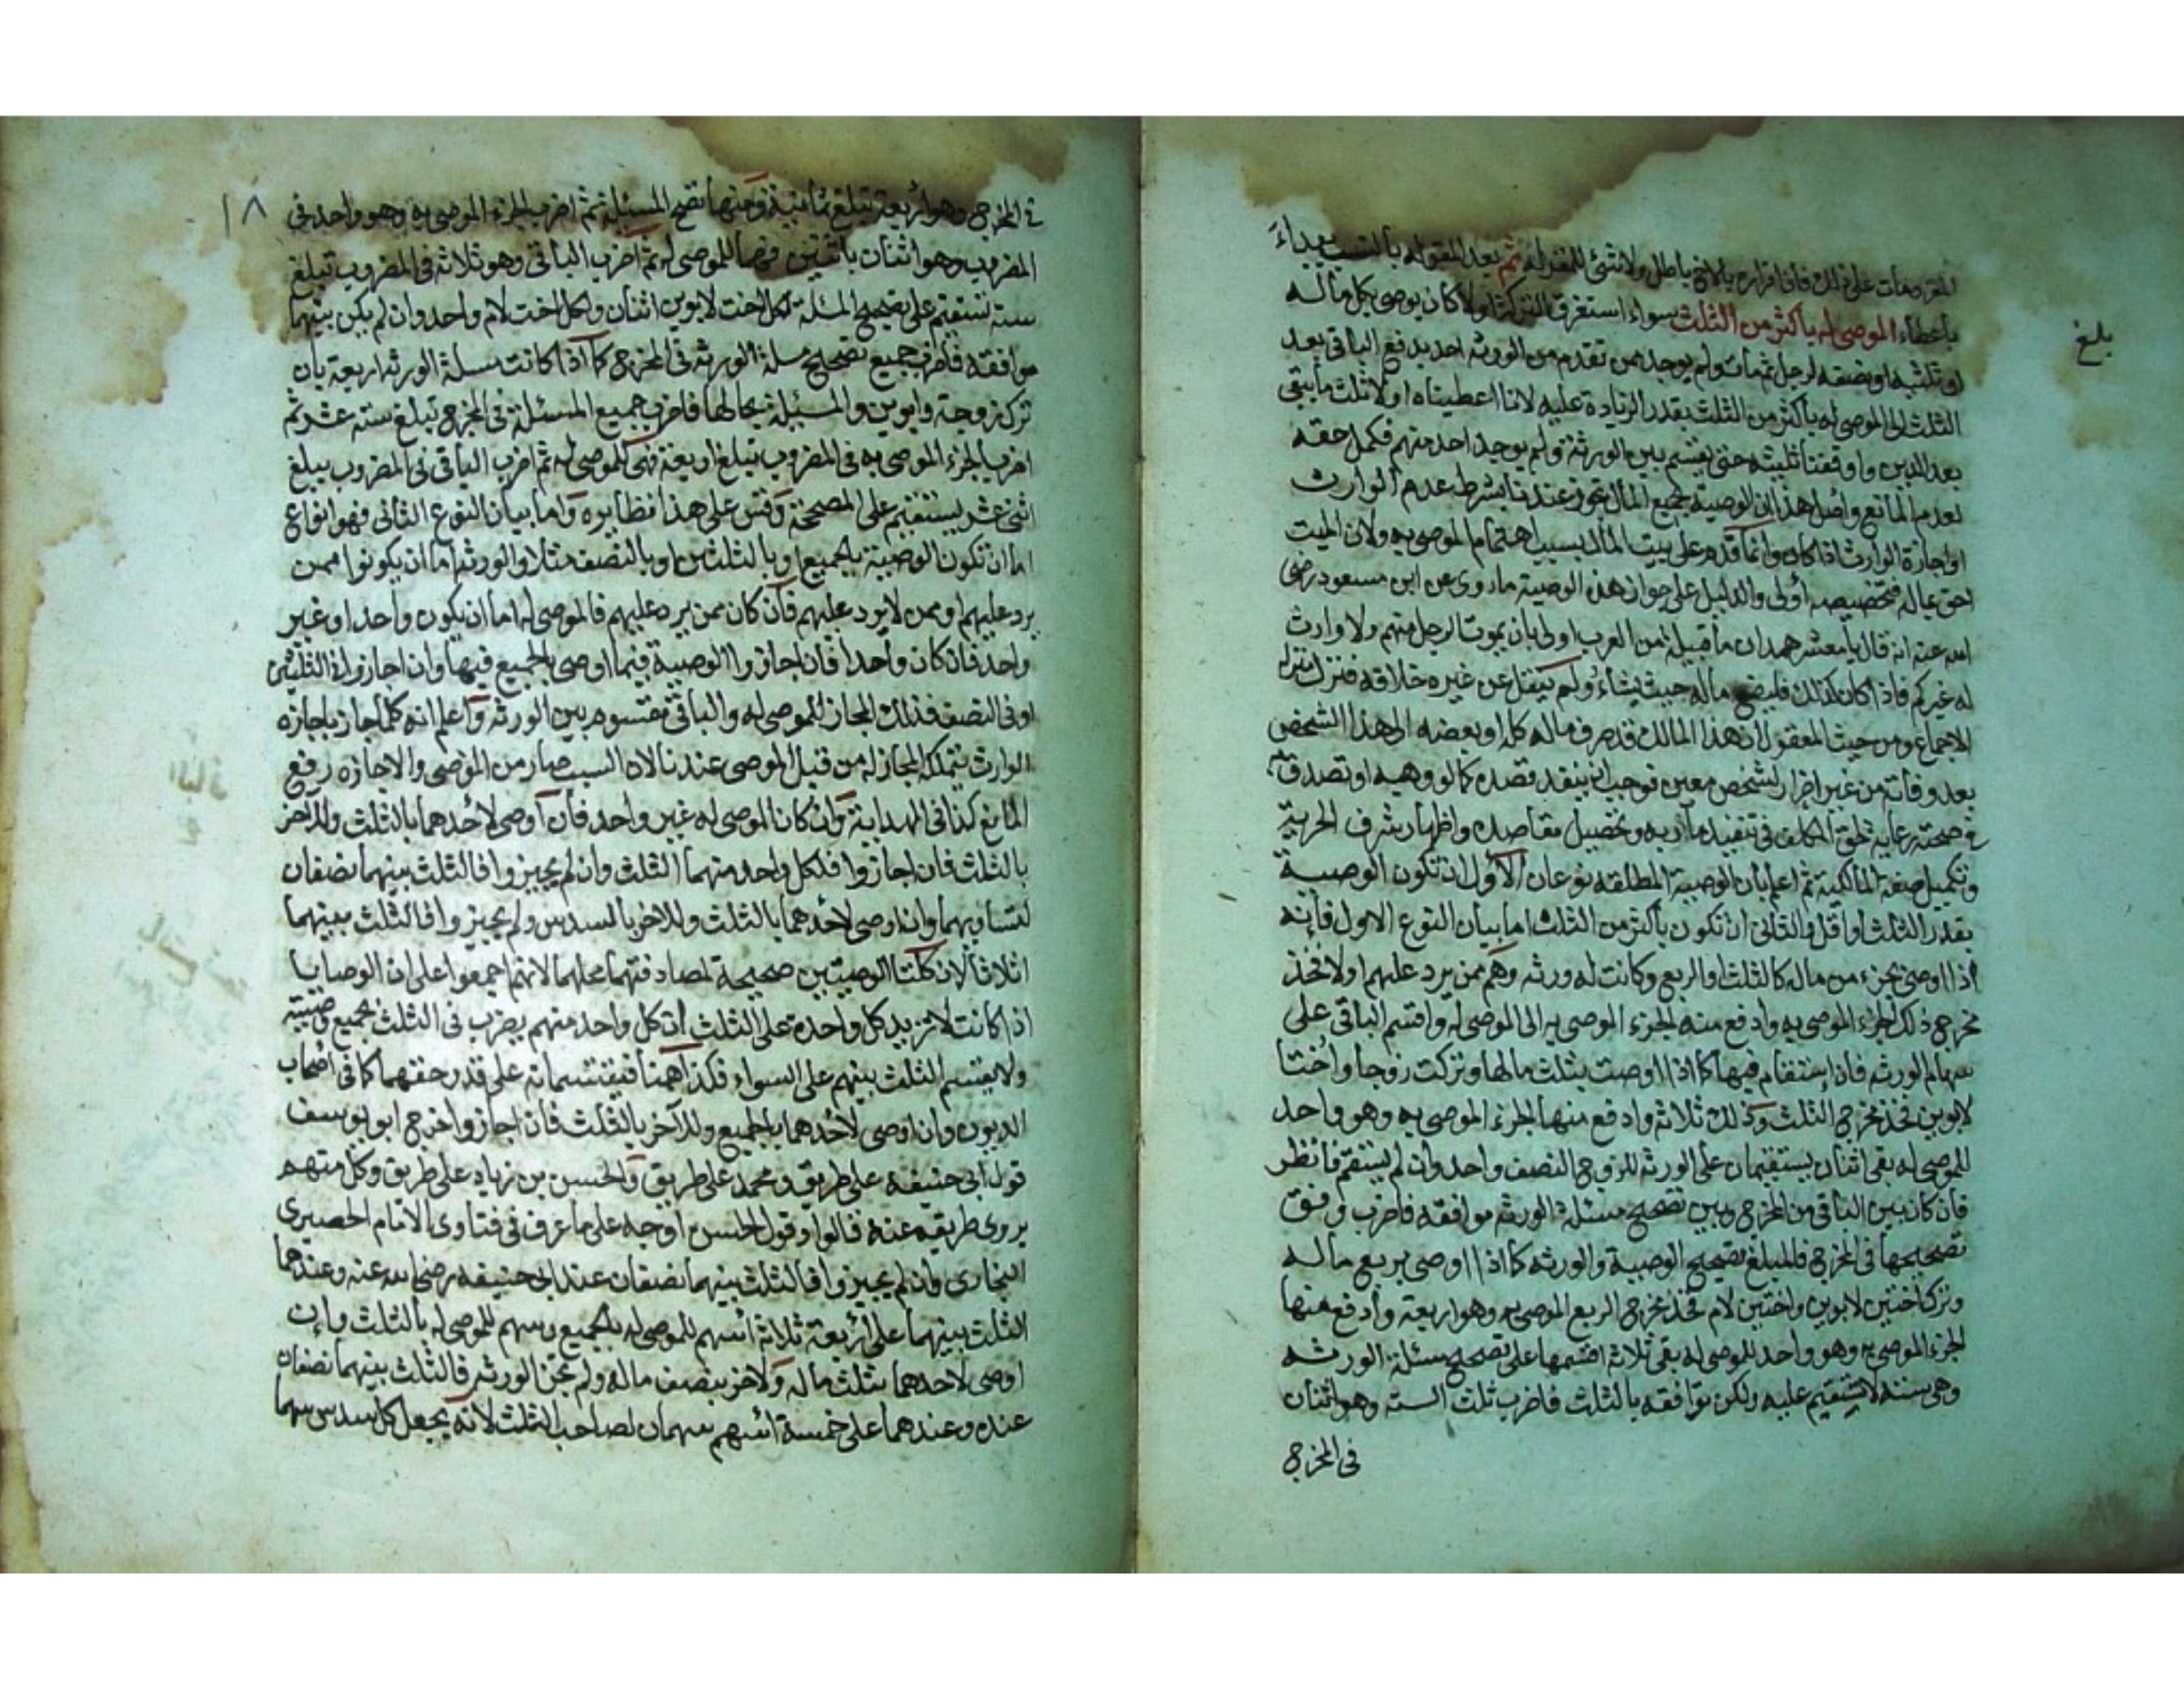 المقر ومات على ذلك فان اقراره بالاخ باطل ولا شئ للمقر له ثم بعد المقر له بالنسب يبداء
باعطاء الموصى له باكثر من الثلث سواء استغرق التركة اولا كان يوصى بكل ماله
او ثلثيه او نصفه لرجل ثم مات ولم يوجد ممن تقدم من الورثه احد يدفع الباقى بعد
الثلث الى الموصى له باكثر من الثلث بقدر الزيادة عليه لانا اعطيناه اولا ثلث ما يبقى
بعد الدين واوقفنا ثلثيه حتى يقسم بين الورثة ولم يوجد احد منهم فكمل حقه
لعدم المانع واصل هذا ان الوصية بجميع المال تجوز عندنا بشرط عدم الوارث
او اجازة الوارث اذا كان وانما قدم على بيت المال بسبب اهتمام الموصى به ولان الميت
احق بماله فتخصيصه أولى والدليل على جواز هذه الوصية ما روى عن ابن مسعود رضى
الله عنه انه قال يا معشر همدان ما قبيلة من العرب اولى بان يموت الرجل منهم ولا وارث
له غيركم فاذا كان كذلك فليضع ماله حيث يشاء ولم ينقل عن غيره خلافه فنزل منزلة
الاجماع ومن حيث المعقول ان هذا المالك قد صرف ماله كله او بعضه الى هذا الشخص
بعد وفاته من غير اضرار لشخص معين فوجب ان ينفد قصده كما لو وهبه او تصدق به
فى صحته رعاية لحق المكلف فى تنفيذ مآربه وتحصيل مقاصده واظهار شرف الحرية
وتكميل صفة المالكية ثم اعلم بان الوصية المطلقه نوعان الاول ان تكون الوصية
بقدر الثلث او اقل والثانى ان تكون باكثر من الثلث اما بيان النوع الاول فانه
اذا اوصى بجزء من ماله كالثلث او الربع وكانت له ورثه وهم ممن يرد عليهم اولا فخذ
مخرج ذلك الجزء الموصى به وادفع منه الجزء الموصى به الى الموصى له واقسم الباقى على
سهام الورثه فان استقام فبها كما اذا اوصت بثلث مالها وتركت زوجا واختا
لابوين فخذ مخرج الثلث وذلك ثلاثه وادفع منها الجزء الموصى به وهو واحد
للموصى له بقى اثنان يستقيمان على الورثه للزوج النصف واحد وان لم يستقم فانظر
فان كان بين الباقى من المخرج وبين تصحيح مسئلة الورثه موافقه فاضرب وفق
تصحيحها فى المخرج فالمبلغ تصحيح الوصية والورثه كما اذا اوصى بربع ماله
وترك اختين لابوين واختين لام فخذ مخرج الربع الموصى به وهو اربعة وادفع منها
الجزء الموصى به وهو واحد للموصى له بقى ثلاثه اقسمها على تصحيح مسئلة الورثه
وهى سته لا تستقيم عليه ولكن توافقه بالثلث فاضرب ثلث الستة وهو اثنان
فى المخرج
بلغ
١٨
فى المخرج وهو اربعة تبلغ ثمانية ومنها تصح المسئلة ثم اضرب الجزء الموصى به وهو واحد فى
المضروب وهو اثنان باثنين فهما للموصى له ثم اضرب الباقى وهو ثلاثه فى المضروب تبلغ
سته تستقيم على تصحيح المسئلة لكل اخت لابوين اثنان ولكل اخت لام واحد وان لم يكن بينهما
موافقة فاضرب جميع تصحيح مسئلة الورثه فى المخرج كما اذا كانت مسئلة الورثة اربعة بان
ترك زوجة وابوين والمسئلة بحالها فاضرب جميع المسئلة فى المخرج تبلغ ستة عشر ثم
اضرب الجزء الموصى به فى المضروب تبلغ اربعة فهى للموصى له ثم اضرب الباقى فى المضروب يبلغ
اثنى عشر يستقيم على المصححة وقس على هذا نظايره واما بيان النوع الثانى فهو انواع
اما ان تكون الوصية بالجميع او بالثلثين او بالنصف مثلا والورثه اما ان يكونوا ممن
يرد عليهم او ممن لا يرد عليهم فان كان ممن يرد عليهم فالموصى له اما ان يكون واحدا او غير
واحد فان كان واحدا فان اجازوا الوصية فيما اوصى بالجميع فبها وان اجازوا فى الثلثين
او فى النصف فذلك المجاز للموصى له والباقى مقسوم بين الورثه واعلم انه كلما جاز باجازة
الوارث يتملكه المجاز له من قبل الموصى عندنا لان السبب صار من الموصى والاجازه رفع
المانع كذا فى الهداية وان كان الموصى له غير واحد فان اوصى لاحدهما بالثلث وللاخر
بالثلث فان اجازوا فلكل واحد منهما الثلث وان لم يجيزوا فالثلث بينهما نصفان
لتساويهما وان اوصى لاحدهما بالثلث وللاخر بالسدس ولم يجيزوا فالثلث بينهما
اثلاثا لان كلتا الوصيتين صحيحة لمصادفتهما محلهما لانهم اجمعوا على ان الوصايا
اذا كانت لا تزيد كل واحدة على الثلث ان كل واحد منهم يضرب فى الثلث بجميع وصيته
ولا يقسم الثلث بينهم على السواء فكذا ههنا فيقتسمانه على قدر حقهما كما فى اصحاب
الديون وان اوصى لاحدهما بالجميع وللآخر بالثلث فان اجازوا خرج ابو يوسف
قول ابى حنيفه على طريق ومحمد على طريق والحسن بن زياد على طريق وكل منهم
يروى طريقه عنه قالوا وقول الحسن اوجه على ما عرف فى فتاوى الامام الحصيرى
البخارى وان لم يجيزوا فالثلث بينهما نصفان عند ابى حنيفه رضى الله عنه وعندهما
الثلث بينهما على اربعة ثلاثة اسهم للموصى له بالجميع وسهم للموصى له بالثلث وان
اوصى لاحدهما بثلث ماله ولاخر بنصف ماله ولم تجز الورثه فالثلث بينهما نصفان
عنده وعندهما على خمسة اسهم سهمان لصاحب الثلث لانه يجعل كل سدس سهما